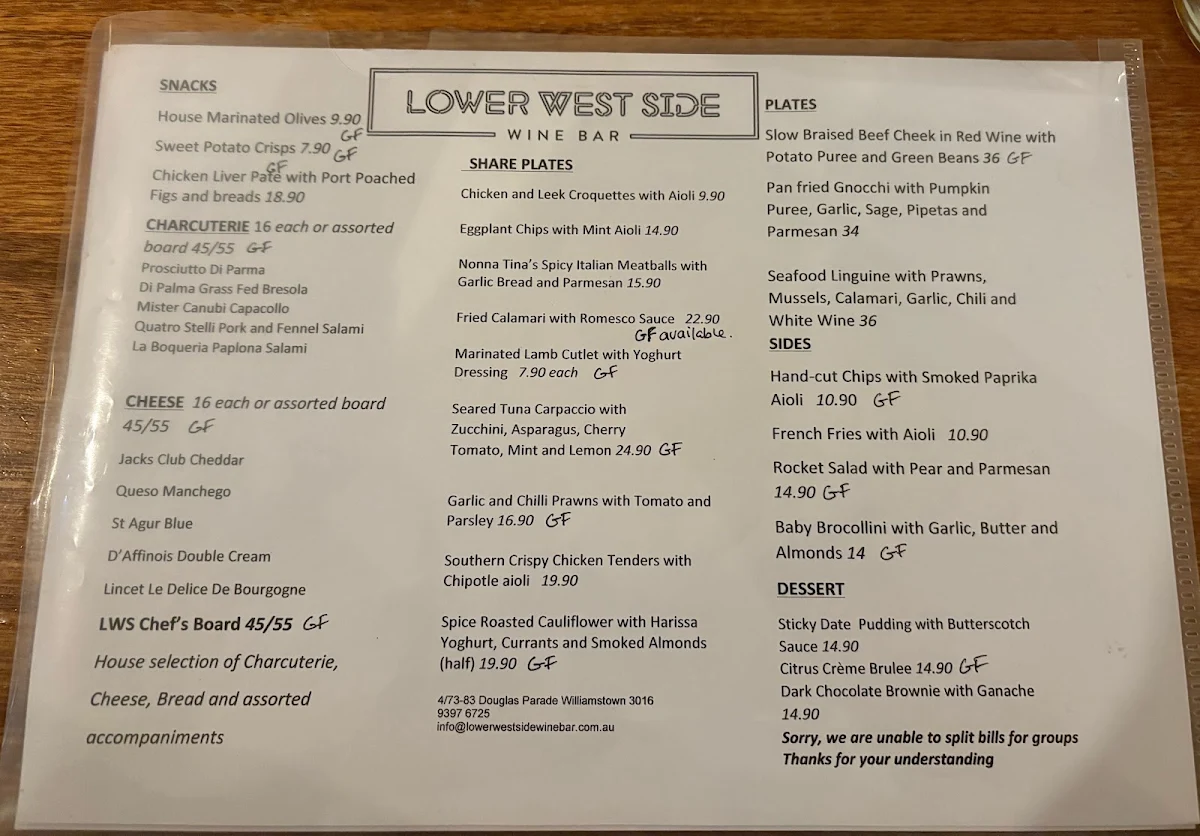 SNACKS
House Marinated Olives 9.90
GF
Sweet Potato Crisps 7.90 GF
GF
Chicken Liver Pate with Port Poached
Figs and breads 18.90
CHARCUTERIE 16 each or assorted
board 45/55 GF
Prosciutto Di Parma
Di Palma Grass Fed Bresola
Mister Canubi Capacollo
Quatro Stelli Pork and Fennel Salami
La Boqueria Paplona Salami
CHEESE 16 each or assorted board
45/55 GF
Jacks Club Cheddar
Queso Manchego
St Agur Blue
D'Affinois Double Cream
Lincet Le Delice De Bourgogne
LWS Chef's Board 45/55 GF
House selection of Charcuterie,
Cheese, Bread and assorted
accompaniments
LOWER WEST SIDE
WINE BAR
SHARE PLATES
Chicken and Leek Croquettes with Aioli 9.90
Eggplant Chips with Mint Aioli 14.90
Nonna Tina's Spicy Italian Meatballs with
Garlic Bread and Parmesan 15.90
Fried Calamari with Romesco Sauce 22.90
GF available.
Marinated Lamb Cutlet with Yoghurt
Dressing 7.90 each GF
Seared Tuna Carpaccio with
Zucchini, Asparagus, Cherry
Tomato, Mint and Lemon 24.90 GF
Garlic and Chilli Prawns with Tomato and
Parsley 16.90 GF
Southern Crispy Chicken Tenders with
Chipotle aioli 19.90
Spice Roasted Cauliflower with Harissa
Yoghurt, Currants and Smoked Almonds
(half) 19.90 GF
4/73-83 Douglas Parade Williamstown 3016
9397 6725
info@lowerwestsidewinebar.com.au
PLATES
Slow Braised Beef Cheek in Red Wine with
Potato Puree and Green Beans 36 GF
Pan fried Gnocchi with Pumpkin
Puree, Garlic, Sage, Pipetas and
Parmesan 34
Seafood Linguine with Prawns,
Mussels, Calamari, Garlic, Chili and
White Wine 36
SIDES
Hand-cut Chips with Smoked Paprika
Aioli 10.90 GF
French Fries with Aioli 10.90
Rocket Salad with Pear and Parmesan
14.90 GF
Baby Brocollini with Garlic, Butter and
Almonds 14 GF
DESSERT
Sticky Date Pudding with Butterscotch
Sauce 14.90
Citrus Crème Brulee 14.90 GF
Dark Chocolate Brownie with Ganache
14.90
Sorry, we are unable to split bills for groups
Thanks for your understanding